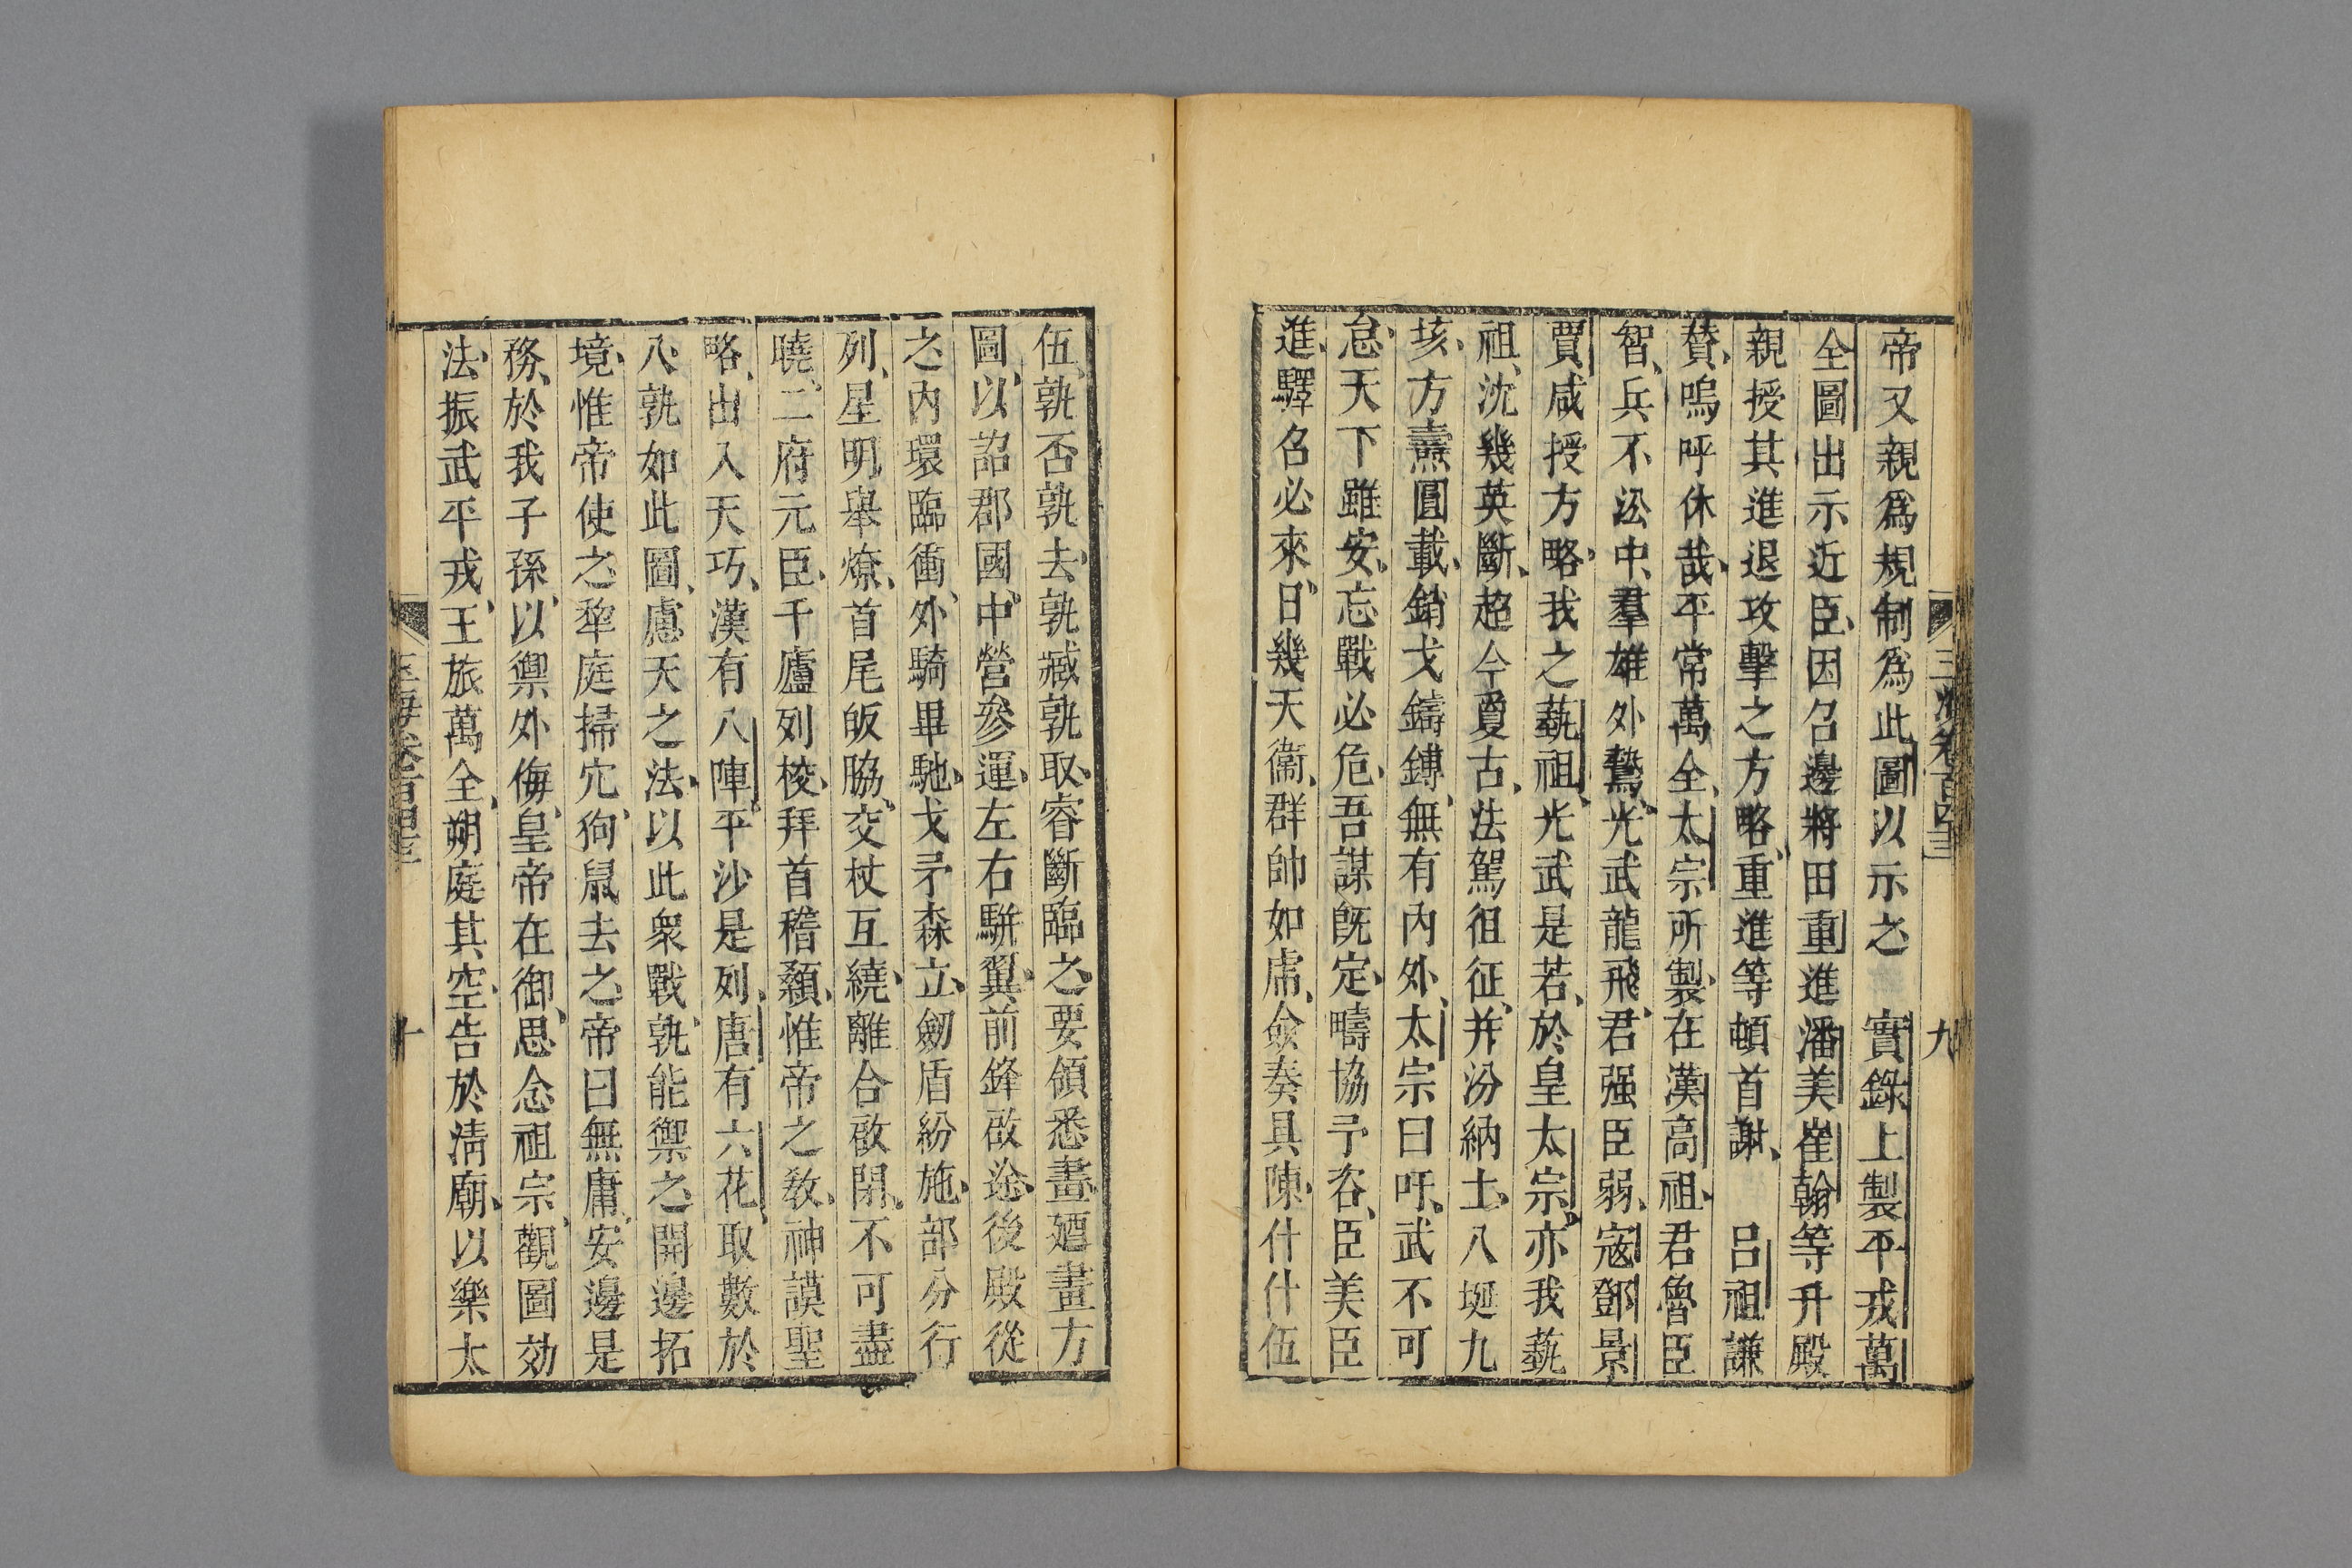 玉海卷百四十三 九
帝又親爲規制爲此圖以示之 實錄上製平戎萬
全圖出示近臣因召邊將田重進潘美崔翰等升殿
親授其進退攻擊之方略重進等頓首謝 呂祖謙
贊嗚呼休哉平常萬全太宗所製在漢高祖君魯臣
智兵不訟中羣雄外鷙光武龍飛君强臣弱寇鄧景
賈咸授方略我之藝祖光武是若於皇太宗亦我藝
祖沈幾英斷超今夐古法駕徂征并汾納土八埏九
垓方燾圓載銷戈鑄鏄無有內外太宗曰吁武不可
怠天下雖安忘戰必危吾謀旣定疇協予咨臣美臣
進驛召必來日幾天衞群帥如虎僉奏具陳什什伍
伍孰否孰去孰臧孰取睿斷臨之要領悉畫廼畫方
圖以詔郡國中營參運左右駢翼前鋒啟途後殿從
之內環臨衝外騎畢馳戈矛森立劒盾紛施部分行
列星明舉燎首尾皈脇交杖互繞離合啟閉不可盡
曉二府元臣千廬列校拜首稽顙惟帝之敎神謨聖
略出入天巧漢有八陣平沙是列唐有六花取數於
八孰如此圖慮天之法以此衆戰孰能禦之開邊拓
境惟帝使之犂庭掃穴狗鼠去之帝曰無庸安邊是
務於我子孫以禦外侮皇帝在御思念祖宗觀圖効
法振武平戎王旅萬全朔庭其空告於淸廟以樂太
玉海卷百四十三 十